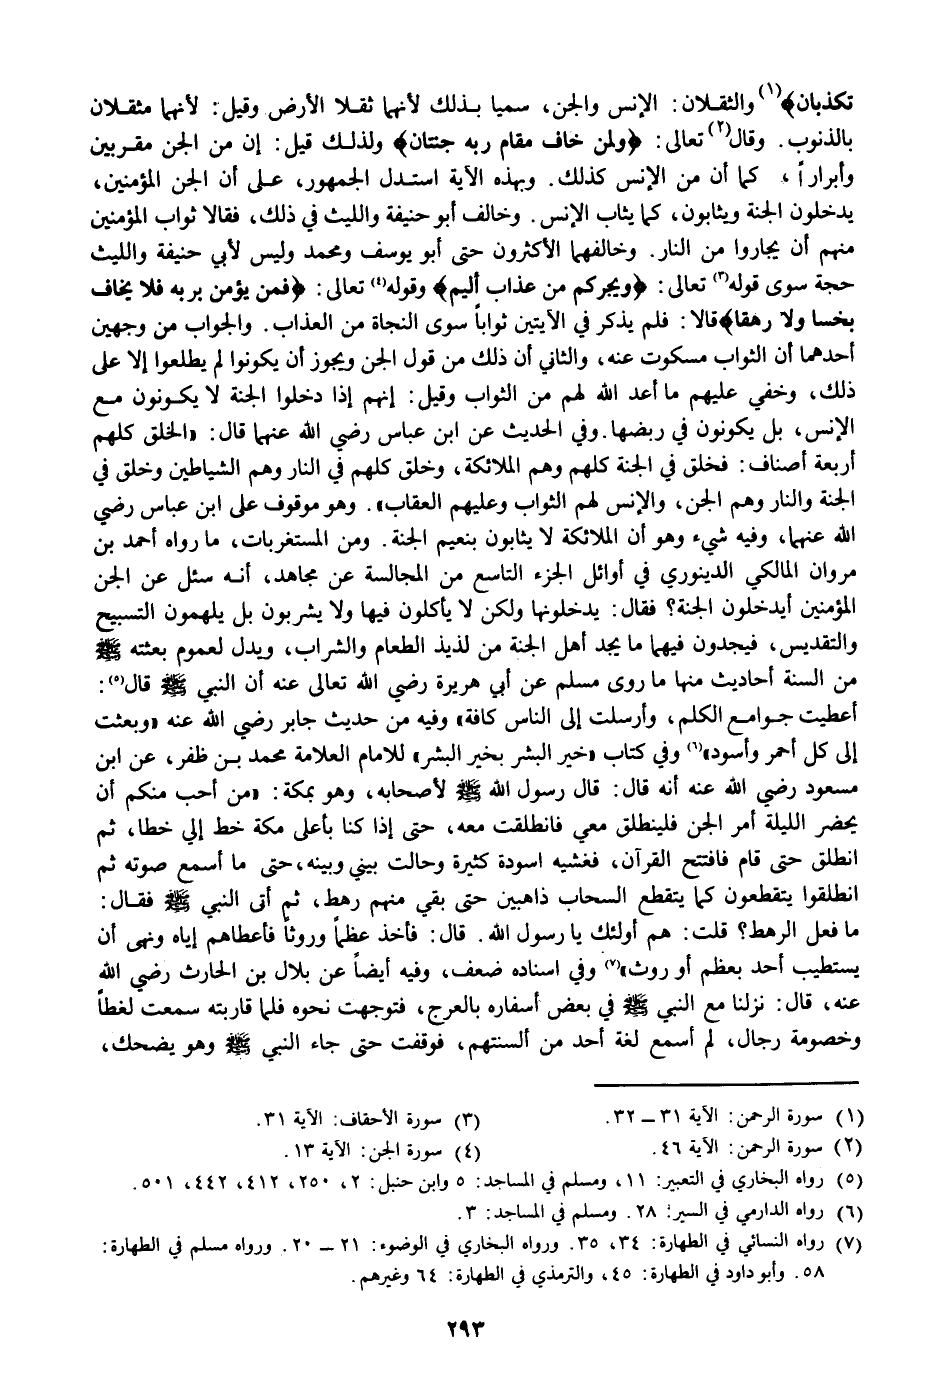 تكذبان﴾(١) والثقلان: الإنس والجن، سميا بذلك لأنهما ثقلا الأرض وقيل: لأنهما مثقلان
بالذنوب. وقال(٢) تعالى: ﴿ولمن خاف مقام ربه جنتان﴾ ولذلك قيل: إن من الجن مقربين
وأبراراً، كما أن من الإنس كذلك. وبهذه الآية استدل الجمهور، على أن الجن المؤمنين،
يدخلون الجنة ويثابون، كما يثاب الإنس. وخالف أبو حنيفة والليث في ذلك، فقالا ثواب المؤمنين
منهم أن يجاروا من النار. وخالفهما الأكثرون حتى أبو يوسف ومحمد وليس لأبي حنيفة والليث
حجة سوى قوله(٣) تعالى: ﴿ويجركم من عذاب أليم﴾ وقوله(٤) تعالى: ﴿فمن يؤمن بربه فلا يخاف
بخسا ولا رهقا﴾ قالا: فلم يذكر في الآيتين ثواباً سوى النجاة من العذاب. والجواب من وجهين
أحدهما أن الثواب مسكوت عنه، والثاني أن ذلك من قول الجن ويجوز أن يكونوا لم يطلعوا إلا على
ذلك، وخفي عليهم ما أعد الله لهم من الثواب وقيل: إنهم إذا دخلوا الجنة لا يكونون مع
الإنس، بل يكونون في ربضها. وفي الحديث عن ابن عباس رضي الله عنهما قال: «الخلق كلهم
أربعة أصناف: فخلق في الجنة كلهم وهم الملائكة، وخلق كلهم في النار وهم الشياطين وخلق في
الجنة والنار وهم الجن، والإنس لهم الثواب وعليهم العقاب». وهو موقوف على ابن عباس رضي
الله عنهما، وفيه شيء وهو أن الملائكة لا يثابون بنعيم الجنة. ومن المستغربات، ما رواه أحمد بن
مروان المالكي الدينوري في أوائل الجزء التاسع من المجالسة عن مجاهد، أنه سئل عن الجن
المؤمنين أيدخلون الجنة؟ فقال: يدخلونها ولكن لا يأكلون فيها ولا يشربون بل يلهمون التسبيح
والتقديس، فيجدون فيهما ما يجد أهل الجنة من لذيذ الطعام والشراب، ويدل لعموم بعثته ﷺ
من السنة أحاديث منها ما روى مسلم عن أبي هريرة رضي الله تعالى عنه أن النبي ﷺ قال(٥):
أعطيت جوامع الكلم، وأرسلت إلى الناس كافة» وفيه من حديث جابر رضي الله عنه «وبعثت
إلى كل أحمر وأسود»(٦) وفي كتاب «خير البشر بخير البشر» للامام العلامة محمد بن ظفر، عن ابن
مسعود رضي الله عنه أنه قال: قال رسول الله ﷺ لأصحابه، وهو بمكة: «من أحب منكم أن
يحضر الليلة أمر الجن فلينطلق معي فانطلقت معه، حتى إذا كنا بأعلى مكة خط إلي خطا، ثم
انطلق حتى قام فافتتح القرآن، فغشيه اسودة كثيرة وحالت بيني وبينه، حتى ما أسمع صوته ثم
انطلقوا يتقطعون كما يتقطع السحاب ذاهبين حتى بقي منهم رهط، ثم أتى النبي ﷺ فقال:
ما فعل الرهط؟ قلت: هم أولئك يا رسول الله. قال: فأخذ عظماً وروثاً فأعطاهم إياه ونهى أن
يستطيب أحد بعظم أو روث»(٧) وفي اسناده ضعف، وفيه أيضاً عن بلال بن الحارث رضي الله
عنه، قال: نزلنا مع النبي ﷺ في بعض أسفاره بالعرج، فتوجهت نحوه فلما قاربته سمعت لغطاً
وخصومة رجال، لم أسمع لغة أحد من ألسنتهم، فوقفت حتى جاء النبي ﷺ وهو يضحك،
(١) سورة الرحمن: الآية ٣١ ــ ٣٢. (٣) سورة الأحقاف: الآية ٣١.
(٢) سورة الرحمن: الآية ٤٦. (٤) سورة الجن: الآية ١٣.
(٥) رواه البخاري في التعبير: ١١، ومسلم في المساجد: ٥ وابن حنبل: ٢، ٢٥٠، ٤١٢، ٤٤٢، ٥٠١.
(٦) رواه الدارمي في السير: ٢٨. ومسلم في المساجد: ٣.
(٧) رواه النسائي في الطهارة: ٣٤، ٣٥. ورواه البخاري في الوضوء: ٢١ ــ ٢٠. ورواه مسلم في الطهارة:
٥٨. وأبو داود في الطهارة: ٤٥، والترمذي في الطهارة: ٦٤ وغيرهم.
٢٩٣